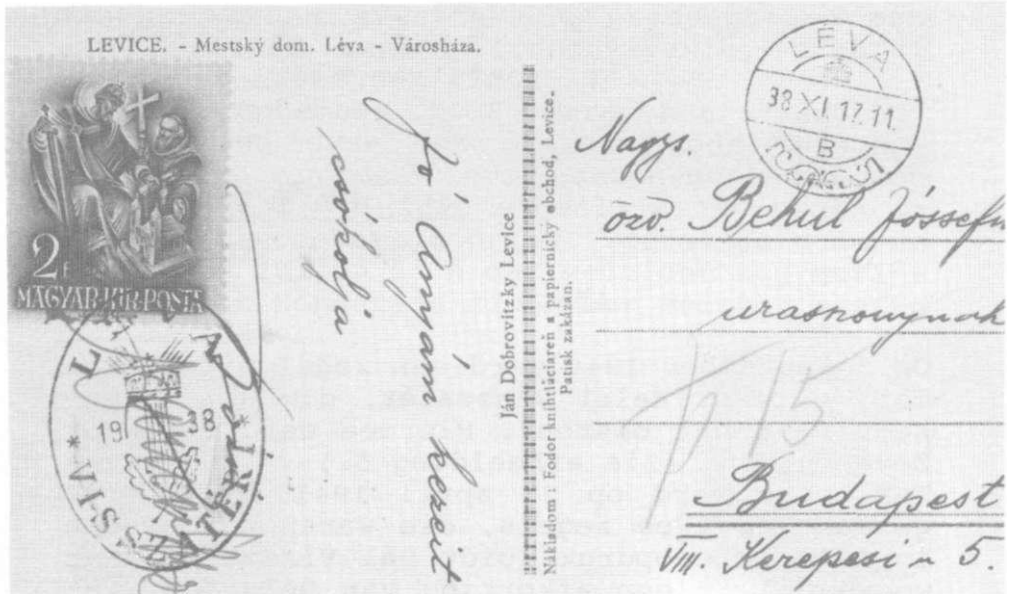 LEVICE. - Mestský dom. Léva - Városháza.
2f
MAGYAR·KIR·POSTA
LÉVA
VISSZATÉRT
1938
Jó Anyám kereszt
csókolja
Ján Dobrovitzky Levice
Nákladom : Fodor knihtlačiareň a papiernický obchod, Levice.
Patisk zakázan.
LÉVA
38 XI. 17. 11.
B
Nagys.
özv. Behul Józsefn
uraszonynak
715
Budapest
VIII. Kerepesi u 5.